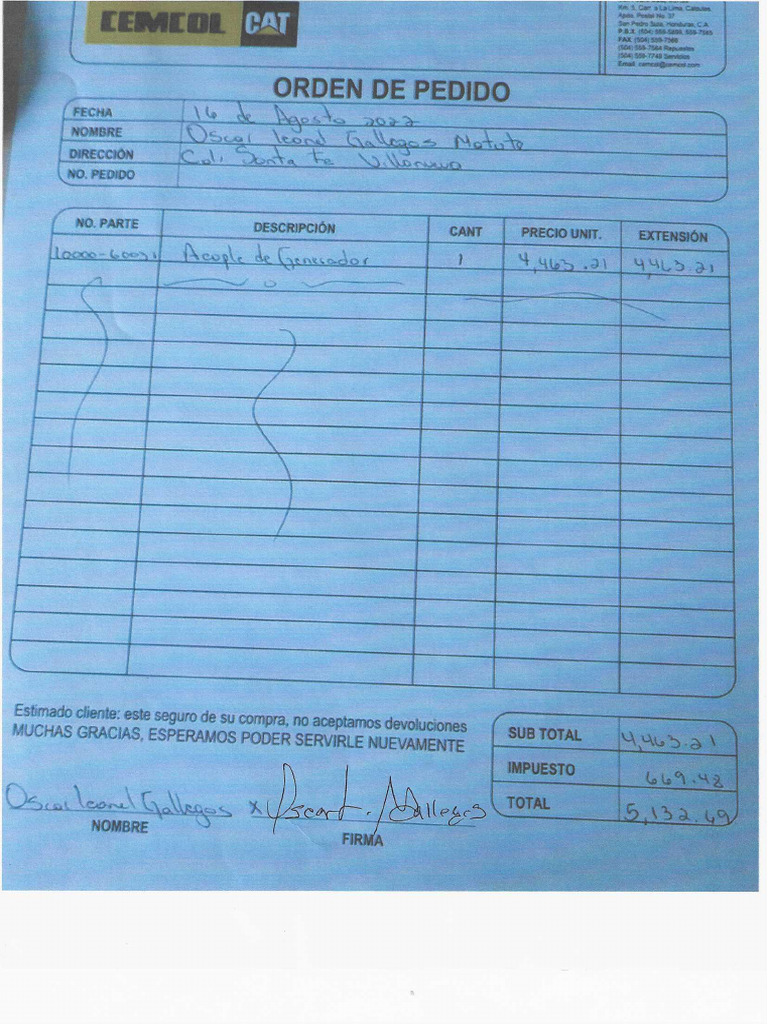 CEMCOL CAT
Km. 3, Carr. a La Lima, Calpules,
Apdo. Postal No. 37
San Pedro Sula, Honduras, C.A.
P.B.X. (504) 559-5888, 559-7585
FAX. (504) 559-7566
(504) 559-7584 Repuestos
(504) 559-7748 Servicios
Email. cemcol@cemcol.com
ORDEN DE PEDIDO
FECHA 16 de Agosto 2022
NOMBRE Oscar leonel Gallegos Matute
DIRECCIÓN Col. Santa Fe Villanueva
NO. PEDIDO
NO. PARTE DESCRIPCIÓN CANT PRECIO UNIT. EXTENSIÓN
10000-60031 Acople de Generador 1 4,463.21 4,463.21
Estimado cliente: este seguro de su compra, no aceptamos devoluciones
MUCHAS GRACIAS, ESPERAMOS PODER SERVIRLE NUEVAMENTE
SUB TOTAL 4,463.21
IMPUESTO 669.48
TOTAL 5,132.69
Oscar leonel Gallegos x Oscar L. Gallegos
NOMBRE FIRMA